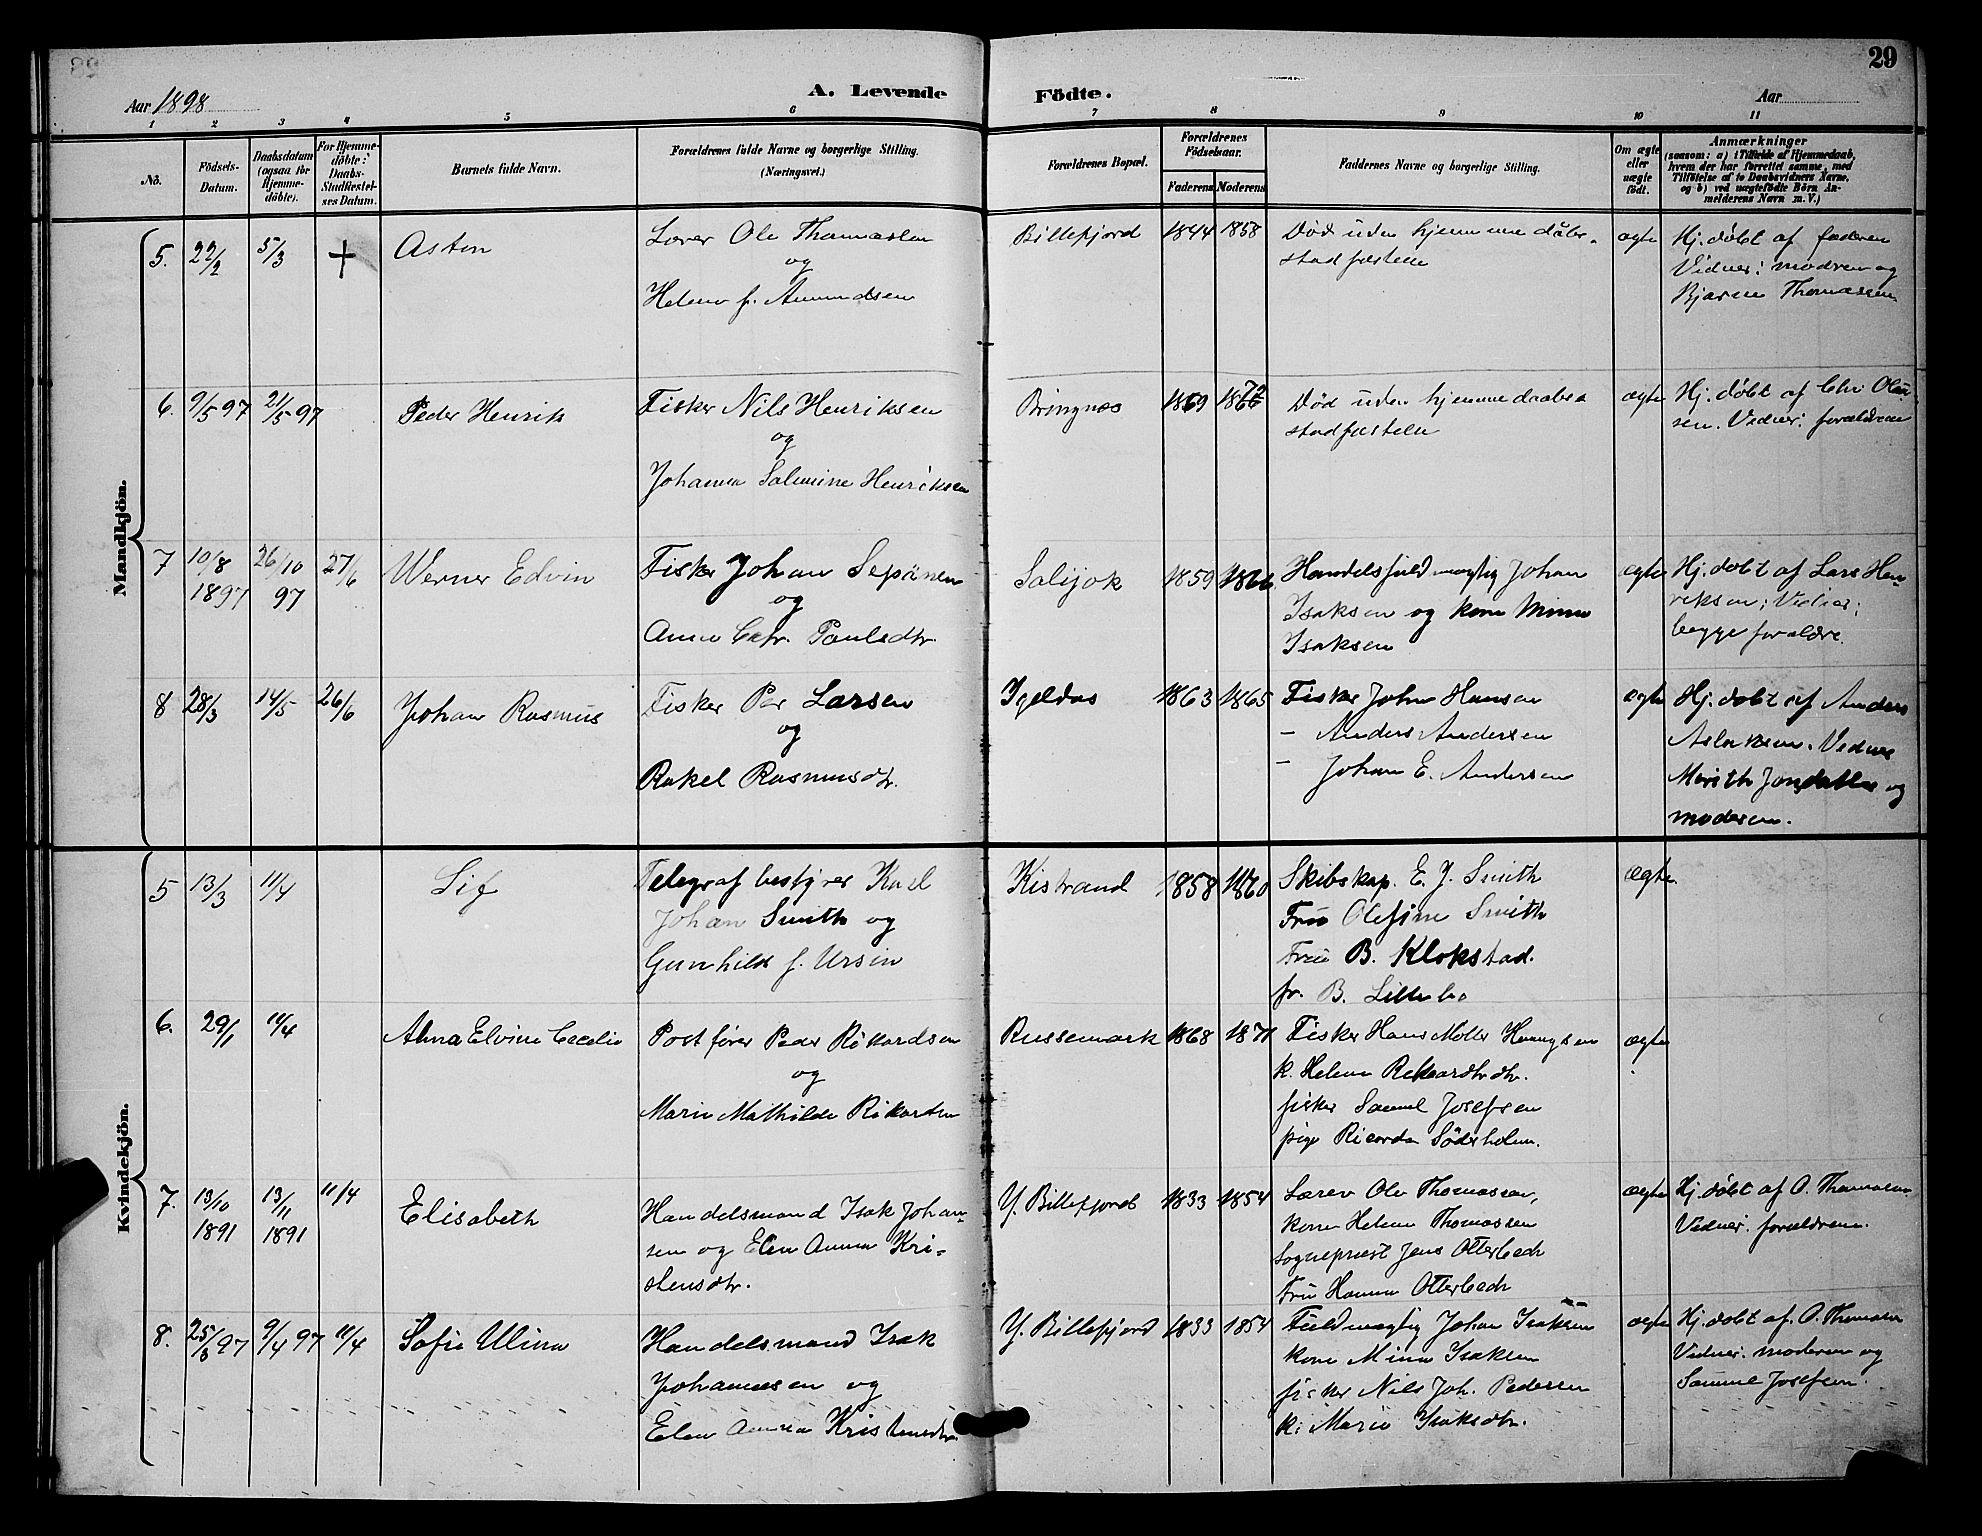 29
Aar 1898
A. Levende Födte.
Aar
1 2 3 4 5 6 7 8 9 10 11
No.
Födsels-
Datum.
Daabsdatum
(ogsaa for
Hjemme-
döbte).
For Hjemme-
döbte:
Daabs-
Stadfæstel-
ses Datum.
Barnets fulde Navn.
Forældrenes fulde Navne og borgerlige Stilling.
(Næringsvei.)
Forældrenes Bopæl.
Forældrenes
Födselsaar.
Faderens Moderens
Faddernes Navne og borgerlige Stilling.
Om ægte
eller
uægte
födt.
Anmærkninger
(saasom: a) i Tilfælde af Hjemmedaab,
hvem der har forrettet samme, med
Tilföielse af to Daabsvidners Navne,
og b) ved uægtefödte Börn An-
melderens Navn m. V.)
Mandkjön.
5. 22/2 5/3 + Aston
Lærer Ole Thomassen
og
Helene f. Amundsen
Billefjord 1844 1858
Död uden hjemmedåbs-
stadfæstelse
ægte
Hj. döbt af faderen
Vidner: modren og
Bjarne Thomassen
6. 9/5 97 21/5 97 Peder Henrik
Fisker Nils Henriksen
og
Johanna Salimine Henriksen
Bringnæs 1869
Död uden hjemmedaabs
stadfæstelse
ægte
Hj. döbt af Chr. Olaus-
sen. Vidner: forældrene
7 10/8 1897 26/10 97 27/6 Werner Edvin
Fisker Johan Sepänen
og
Anna Catr. Paulsdtr.
Salijok 1859 1866
Handelsfuldmægtig Johan
Isaksen og kone Minna
Isaksen
ægte
Hj. döbt af Lars Hen-
riksen; Vidner:
begge forældre.
8 28/3 14/5 26/6 Johan Rasmus
Fisker Per Larsen
og
Rakel Rasmusdtr.
Igeldas 1863 1865
Fisker John Hansen
- Anders Andersen
- Johan E. Andersen
ægte
Hj. döbt af Anders
Aslaksen. Vidner
Marith Jonsdatter og
moderen.
Kvindekjön.
5 13/3 11/4 Sif
Telegrafbestyrer Karl
Johan Smith og
Gunhild f. Ursin
Kistrand 1858 1860
Skibskap. E. J. Smith
Fru Olefine Smith
Fru B. Klokstad.
fr. B. Lillebo
ægte
6. 29/1 11/4 Alma Elvine Cecilie
Postförer Peder Rikardsen
og
Marie Mathilde Rikartsen
Russemark 1868 1871
Fisker Hans Møller
k. Helene Rekardtsdtr.
fisker Samuel Josefsen
pige Ricarda Söderholm.
ægte
7. 13/10 1891 13/11 1891 11/4 Elisabeth
Handelsmand Isak Johan-
sen og Elen Anna Kri-
stensdtr.
Y. Billefjord 1833 1854
Lærer Ole Thomassen,
kone Helene Thomassen
Sogneprest Jens Otterbech
Fru Hanna Otterbech
ægte
Hj. döbt af O. Thomassen
Vidner: forældrene.
8. 25/3 97 9/4 97 11/4 Sofie Ulina
Handelsmand Isak
Johannesen og
Elen Anna Kristensdtr.
Y. Billefjord 1833 1854
Fuldmægtig Johan Isaksen
kone Minna Isaksen
fisker Nils Joh. Pedersen
k. Marie Isaksdtr.
ægte
Hj. döbt af. O. Thomassen
Vidner: moderen og
Samuel Josefsen.